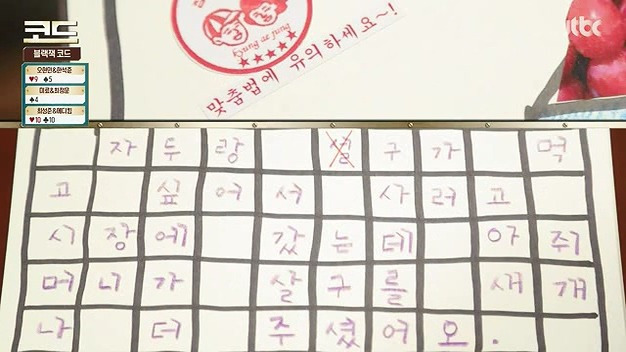 코드
블랙잭 코드
오현민&한석준
♥9 ♠5
미료&최정문
♠4
최성준&에디킴
♥10 ♣10
jtbc
Kyung ae jung
맞춤법에 유의하세요~!
자두랑 설구가 먹
고 싶어서 사러고
시장에 갔는데 아쥐
머니가 살구를 새개
나 더 주셨어오.